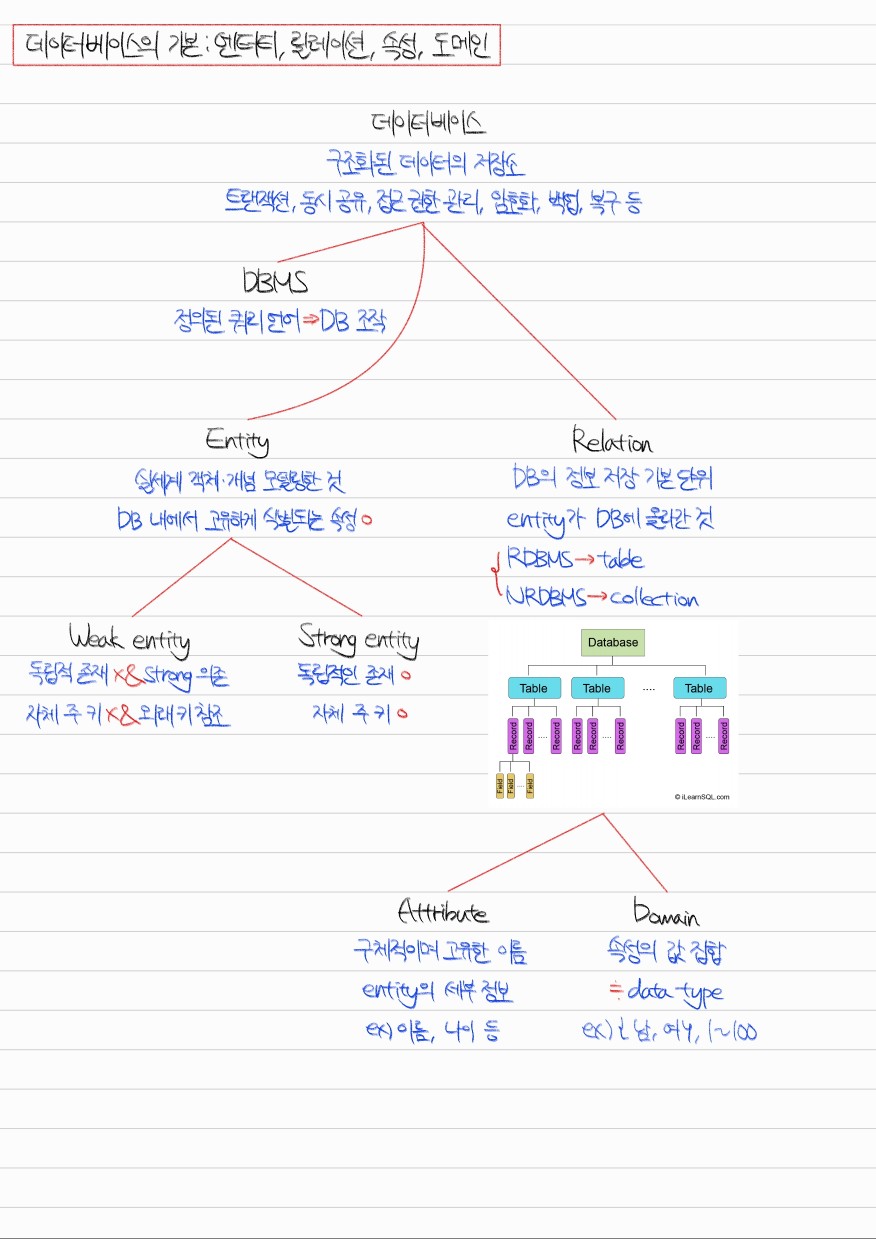 데이터베이스의 기본: 엔터티, 릴레이션, 속성, 도메인
데이터베이스
구조화된 데이터의 저장소
트랜잭션, 동시 공유, 접근 권한 관리, 암호화, 백업, 복구 등
DBMS
정의된 쿼리 언어⇒DB 조작
Entity
실세계 객체·개념 모델링한 것
DB 내에서 고유하게 식별되는 속성 o
Weak entity
독립적 존재 x & strong 의존
자체 주 키 x & 외래키 참조
Strong entity
독립적인 존재 o
자체 주 키 o
Relation
DB의 정보 저장 기본 단위
entity가 DB에 올라간 것
RDBMS→table
NRDBMS→collection
Database
Table Table .... Table
Record Record .... Record Record Record .... Record Record Record .... Record
Field Field ... Field
© iLearnSQL.com
Attribute
구체적이며 고유한 이름
entity의 세부 정보
ex) 이름, 나이 등
Domain
속성의 값 집합
≒ data type
ex) 남, 여, 1~100